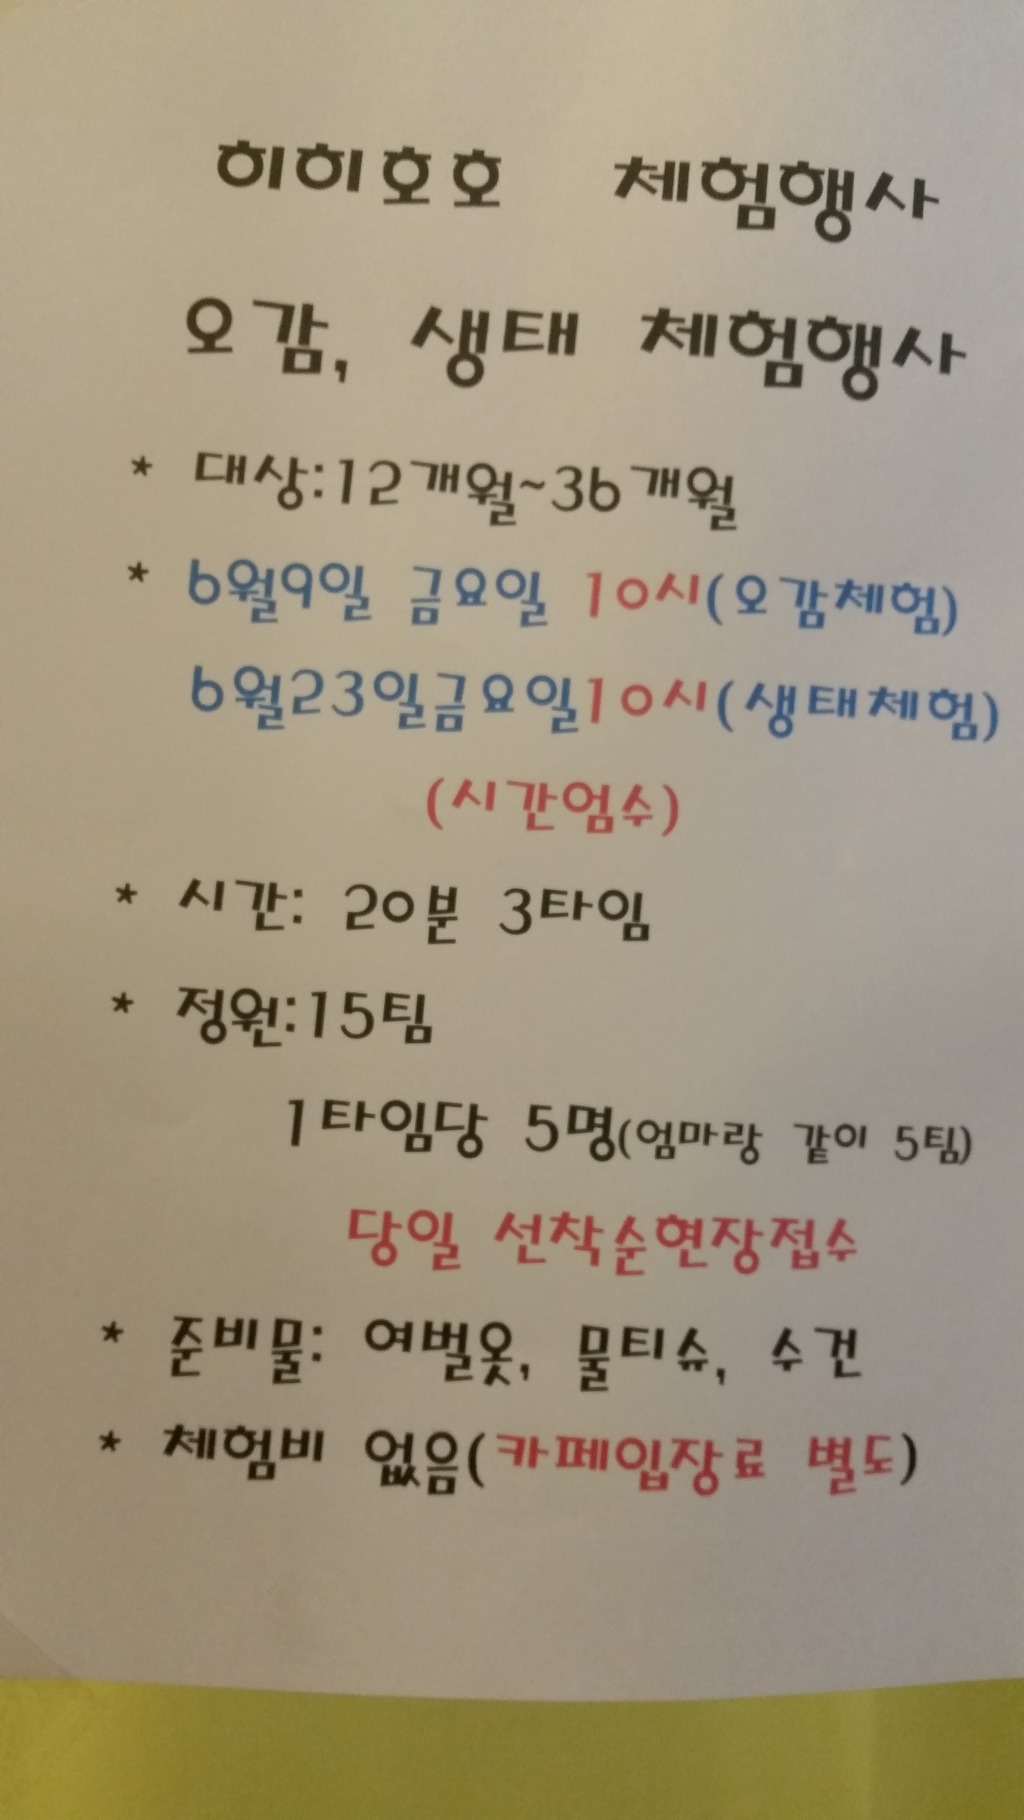 히히호호 체험행사
오감, 생태 체험행사
* 대상:12개월~36개월
* 6월9일 금요일 10시(오감체험)
6월23일금요일10시(생태체험)
(시간엄수)
* 시간: 20분 3타임
* 정원:15팀
1타임당 5명(엄마랑 같이 5팀)
당일 선착순현장접수
* 준비물: 여벌옷, 물티슈, 수건
* 체험비 없음(카페입장료 별도)